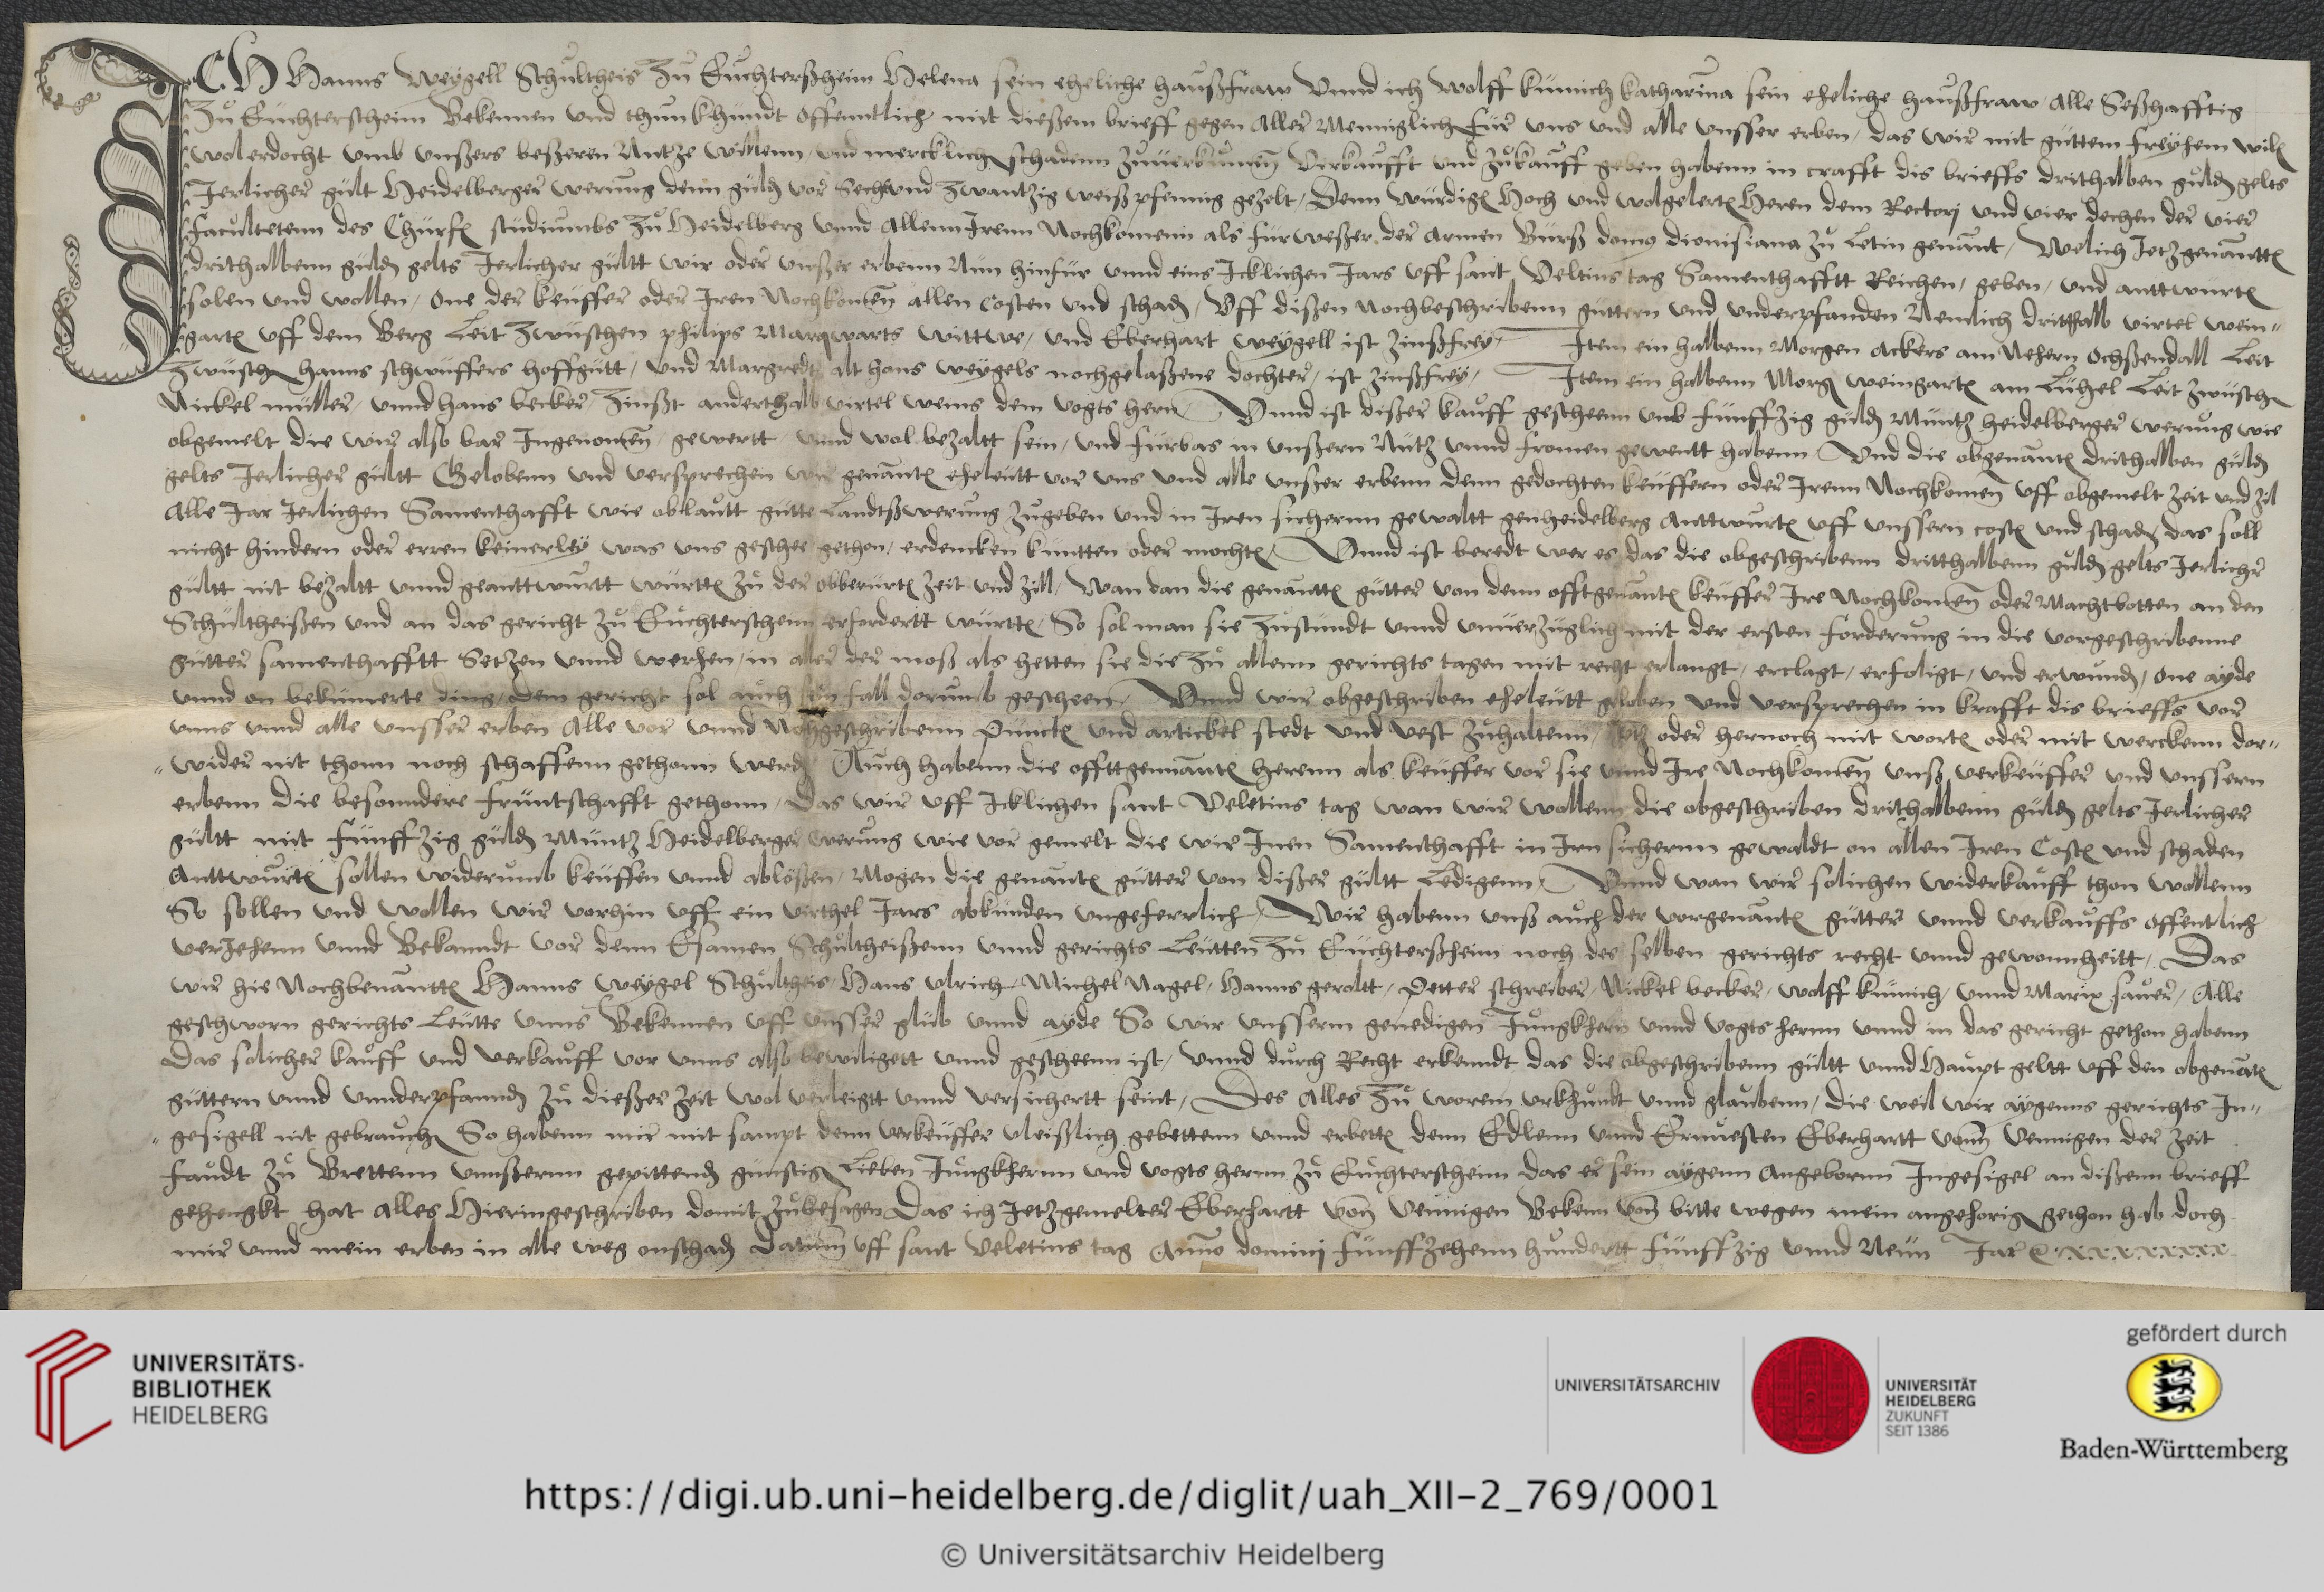 ICH Hanns Weygell Schultheis Zu Euchterßheim Helena sein eheliche haußfraw Vnnd ich Wolff Kumich Katharina sein eheliche haußfraw Alle Seßhafftig
Zu Euchtersheim Bekennen vnd thun khundt offenntlich mit dießem brieff gegen Aller Menniglich Für vns vnd alle vnsser erben, das wir mit guttem freyhem wiln
wolerdocht vmb vnßers beßeren Nutze willenn, vnd mercklich schadenn zuuerkumen Verkaufft vnd zukauff geben habenn in crafft dis brieffs drithalben guldn gelts
Jerlicher gült Heidelberger werung denn guldn vor Sechs vnd zwantzig weiß pfennig gezelt, Denn Wurdign Hoch vnd wolgelertn Heren dem Rectorj vnd vier dechen der vier
Faculteten des Churfn studiumbs zu Heidelberg vnnd Allenn Irenn Nochkomenn als furweßer der Armen Burß domus dionisiana zu Letin genant, Welich Jetzgenantn
drithalbenn guldn gelts Jerlicher gültt wir oder vnßer erbenn Nun hinfur vnnd eins Icklichen Jars vff sant Veltins tag Samenthafftt Reichen, geben, vnd anttwurtn
solen vnd wollen, One der keuffer oder Iren Nochkomen allen Costen vnd schadn, Vff dißen nochbeschribenn guttern vnd vnderpfanden Nemlich dritthalb virtel wein-
gartn vff dem Berg Leit zwuschen philips Marqwarts wittwe, vnd Eberhart Weygell ist zinßfrey, Item ein halbenn Morgen Ackers am Nehern Ochßendall Leit
zwuschn Hanns schwuffers hoffgutt, vnd Margredt alt hans weygels nochgelaßene dochter, ist zinßfrey, Item ein halbenn Morgn weingartn am Luhel Leit zwuschn
Nickel muller, vnnd hans becker, zinßt anderthalb virtel weins dem vogts hern, Vnnd ist dißer kauff gescheenn vmb funffzig guldn Muntz heidelberger werung wie
obgemelt die wir also bar Ingenomen, gewertt, vnnd wol bezaltt sein, vnd furbas in vnßern Nutz vnnd fromen gewentt habenn, Vnd die obgenantn drithalben guldn
gelts Jerlicher gultt Gelobenn vnd versprechen wir genantn eheleutt vor vns vnd alle vnßer erbenn denn gedochten keuffern oder Irenn Nochkomen vff obgemelt zeit vnd zil
Alle Jar Jerlichen Samenthafft wie oblautt gutte Landtßwerung zugeben vnd in Iren sichernn gewaltt gen heidelberg Anttwurtn vff vnssern costn vnd schadn, das soll
nicht hindern oder erren keinerley was vns geschee gethon, erdencken kuntten oder mochtn, Vnnd ist beredt wer es das die obgeschribenn dritthalbenn guldn gelts Jerlicher
gultt nit bezaltt vnnd geanttwurtt wurttn zu der obberurtn zeit vnd zill, Wan dan die genantn gutter von denn offtgenantn keuffer Ire Nochkomen oder Machtbotten an den
Schultheißen vnd an das gericht zu Euchtersheim erfordertt wurttn, So sol man sie zustundt vnnd vnuerzuglich mit der ersten forderung in die vorgeschribenne
gutter samenthafftt Setzen vnnd werhen, in aller der moß als hetten sie die zu allenn gerichts tagen mit recht erlangt, erclagt, erfoligt, vnd erwundn, one ayde
vnnd on bekumerte ding, Dem gericht sol auch sein fall dorumb gescheen, Vnnd wir obgeschriben eheleutt globen vnd versprechen in krafft dis brieffs vor
vnns vnnd alle vnsser erben Alle vor vnnd Nochgeschribenn Punctn vnd artickel stedt vnd vest zuhaltenn, Jetz oder hernoch mit wortn oder mit werckenn dor-
wider nit thonn noch schaffenn gethonn werdn Auch habenn die offttgenantn herenn als keuffer vor sie vnnd Ire Nochkomen vnß verkeuffer vnd vnssern
erbenn die besonndere fruntschafft gethonn, Das wir vff Icklichen sant Veletins tag wan wir wollenn die obgeschriben drithalbenn guldn gelts Jerlicher
gultt mit Funffzig guldn Muntz Heidelberger werung wie vor gemelt die wir Inen Samenthafft in Irn sichernn gewaldt on allen Iren Costn vnd schaden
Anttwurtn sollen widerumb keuffen vnnd ablößen, Mogen die genantn gutter von dißer gultt Ledigenn, Vnnd wan wir solichen widerkauff thon wollenn
So sollen vnd wollen wir vorhin vff ein virthel Jars abkunden vngeferrlich, Wir habenn vnß auch der vorgenantn gutter vnnd verkauffs offentlich
verJehenn vnnd Bekanndt vor denn Ersamen Schultheißenn vnnd gerichts Leutten zu Euchterßheim noch des selben gerichts recht vnnd gewonnheitt, Das
wir hie Nochbenanttn Hanns Weygel Schultheis, Hans vlrich, Michel Nagel, Hanns geroltt, Petter schreiber, Nickel becker, Wolff Kumich, vnnd Marix sauer, Alle
geschworn gerichts Leutte vnns Bekennen vff vnsser glub vnnd ayde So wir vnsserm genedigen Jungkhern vnnd vogts hernn vnnd in das gericht gethon habenn
Das solicher kauff vnd verkauff vor vnns also bewiligett vnnd gescheenn ist, Vnnd durch Recht erkenndt das die obgeschribenn gultt vnnd Haupt geltt vff den obgenantn
guttern vnnd vnnderpfanndn zu dießer zeit wol verleigtt vnnd versichertt seint, Des Alles zu worem vrkhundt vnnd glaubenn, die weil wir aygenns gerichts In-
gesigell nit gebrauchn So habenn mir mit sampt denn verkeuffer vleißlich gebettenn vnnd erbettn denn Edlenn vnnd Ernuesten Eberhartt vonn Vennigen der zeit
Faudt zu Brettenn vnnßernn gepittendn gunstign Lieben Jungkhernn vnd vogts hernn zu Euchtersheim das er sein aygenn Angebornn Ingesigel an dißenn brieff
gehengkt hat alles Hieringeschriben domit zubesagen Das ich Jetzgemelter Eberhartt vonn Vennigen Bekenn vonn bitte wegen mein angehorign gethon hab doch
mir vnnd mein erben in alle weg onschadn Datum vff sant Veletins tag Anno domini Funffzehenn hundertt Funffzig vnnd Neun Jar
UNIVERSITÄTS-
BIBLIOTHEK
HEIDELBERG
UNIVERSITÄTSARCHIV
UNIVERSITÄT
HEIDELBERG
ZUKUNFT
SEIT 1386
gefördert durch
Baden-Württemberg
https://digi.ub.uni-heidelberg.de/diglit/uah_XII-2_769/0001
© Universitätsarchiv Heidelberg